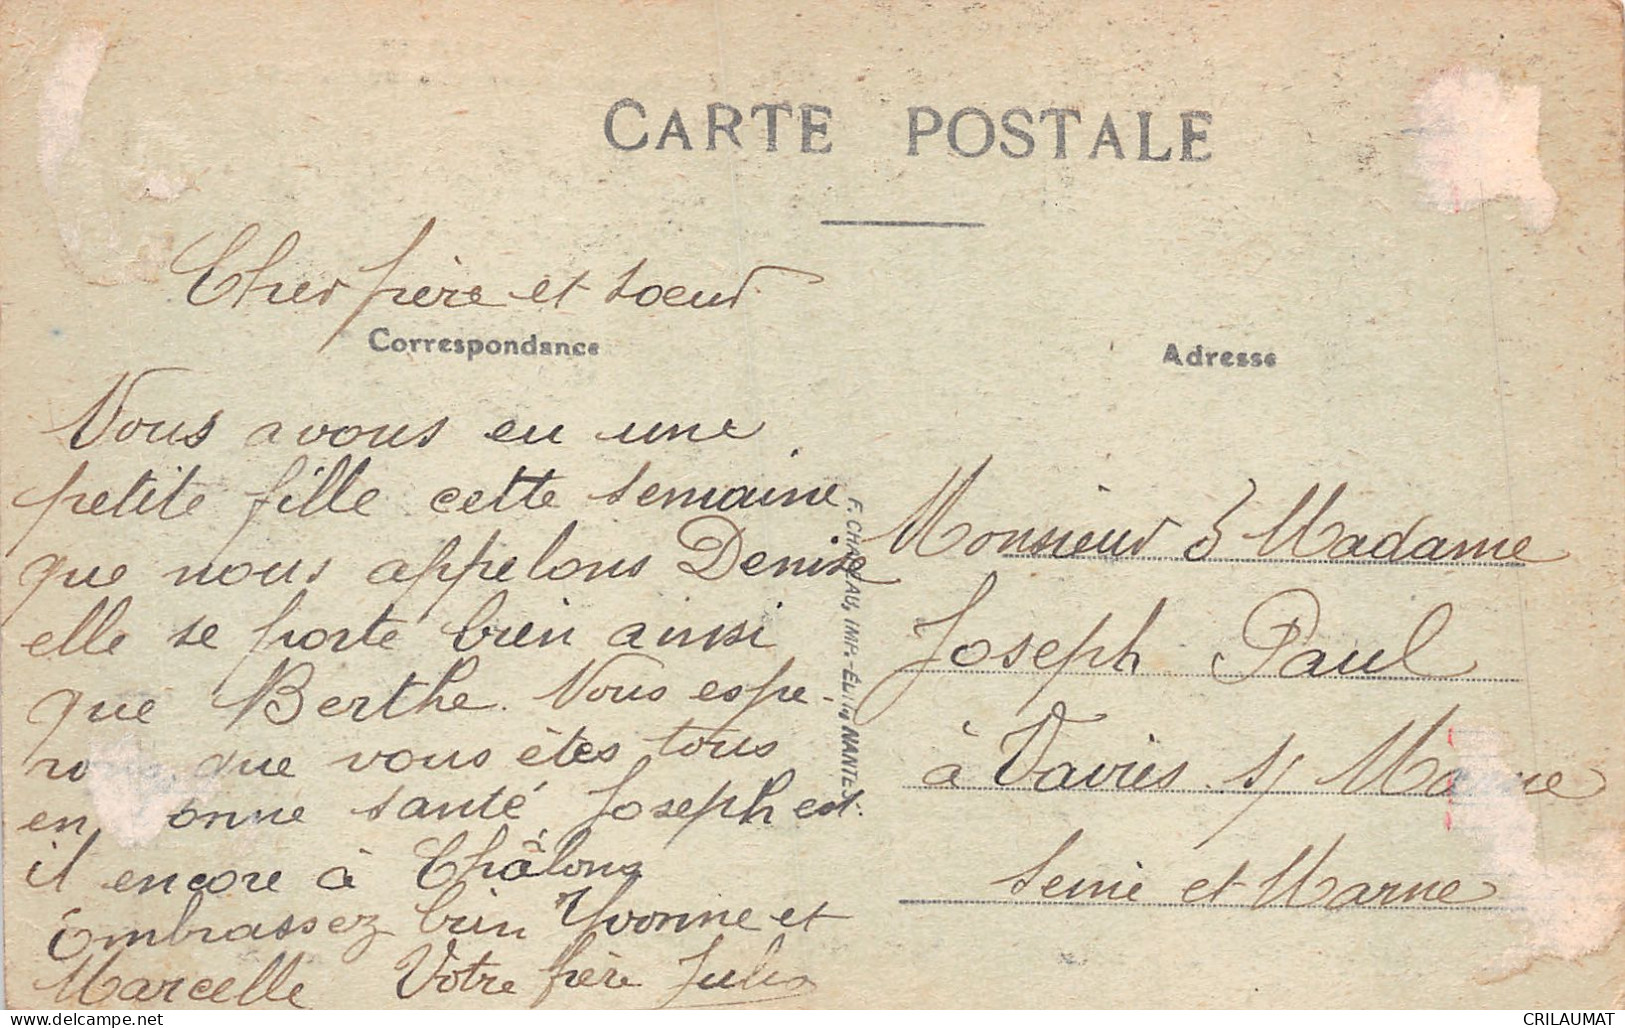 CARTE POSTALE
Cher frère et soeur
Correspondance
Nous avons eu une
petite fille cette semaine
que nous appelons Denise
elle se porte bien ainsi
que Berthe. Nous espe-
rons que vous êtes tous
en bonne santé, Joseph est
il encore à Châlons
Embrassez bien Yvonne et
Marcelle Votre frère Jules
F. CHAPEAU, IMP.-ÉDIT., NANTES.
Adresse
Monsieur & Madame
Joseph Paul
à Vaires s/ Marne
Seine et Marne
CRILAUMAT